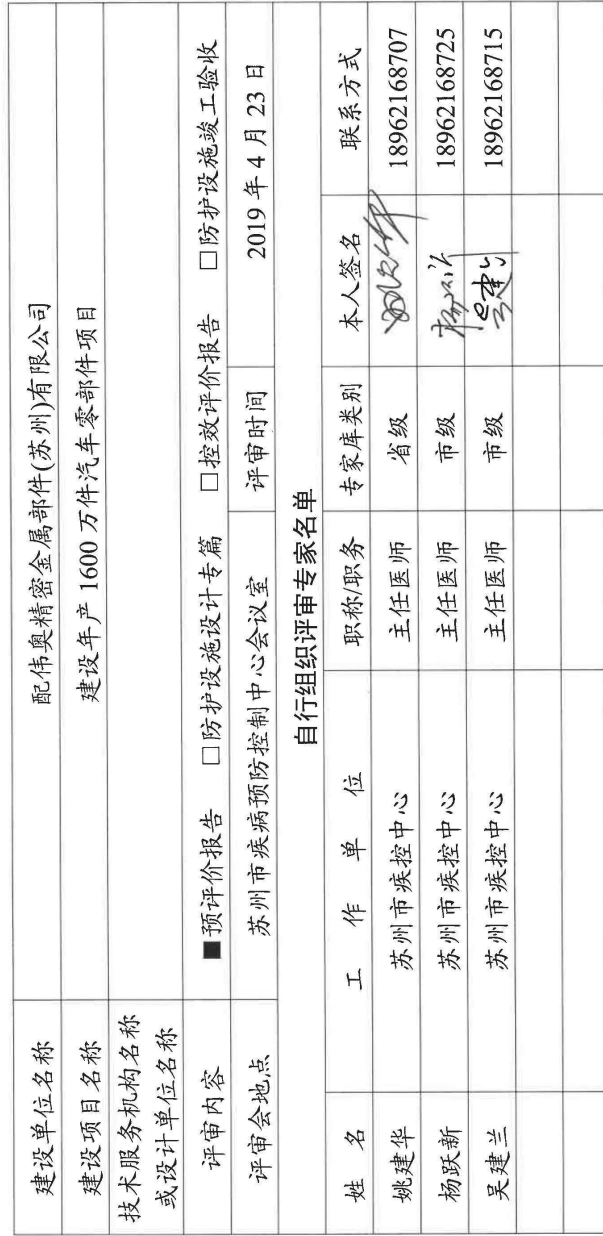 建设单位名称 配伟奥精密金属部件(苏州)有限公司
建设项目名称 建设年产 1600 万件汽车零部件项目
技术服务机构名称
或设计单位名称
评审内容 ■预评价报告 □防护设施设计专篇 □控效评价报告 □防护设施竣工验收
评审会地点 苏州市疾病预防控制中心会议室 评审时间 2019 年 4 月 23 日
自行组织评审专家名单
姓 名 工 作 单 位 职称/职务 专家库类别 本人签名 联系方式
姚建华 苏州市疾控中心 主任医师 省级 18962168707
杨跃新 苏州市疾控中心 主任医师 市级 18962168725
吴建兰 苏州市疾控中心 主任医师 市级 18962168715